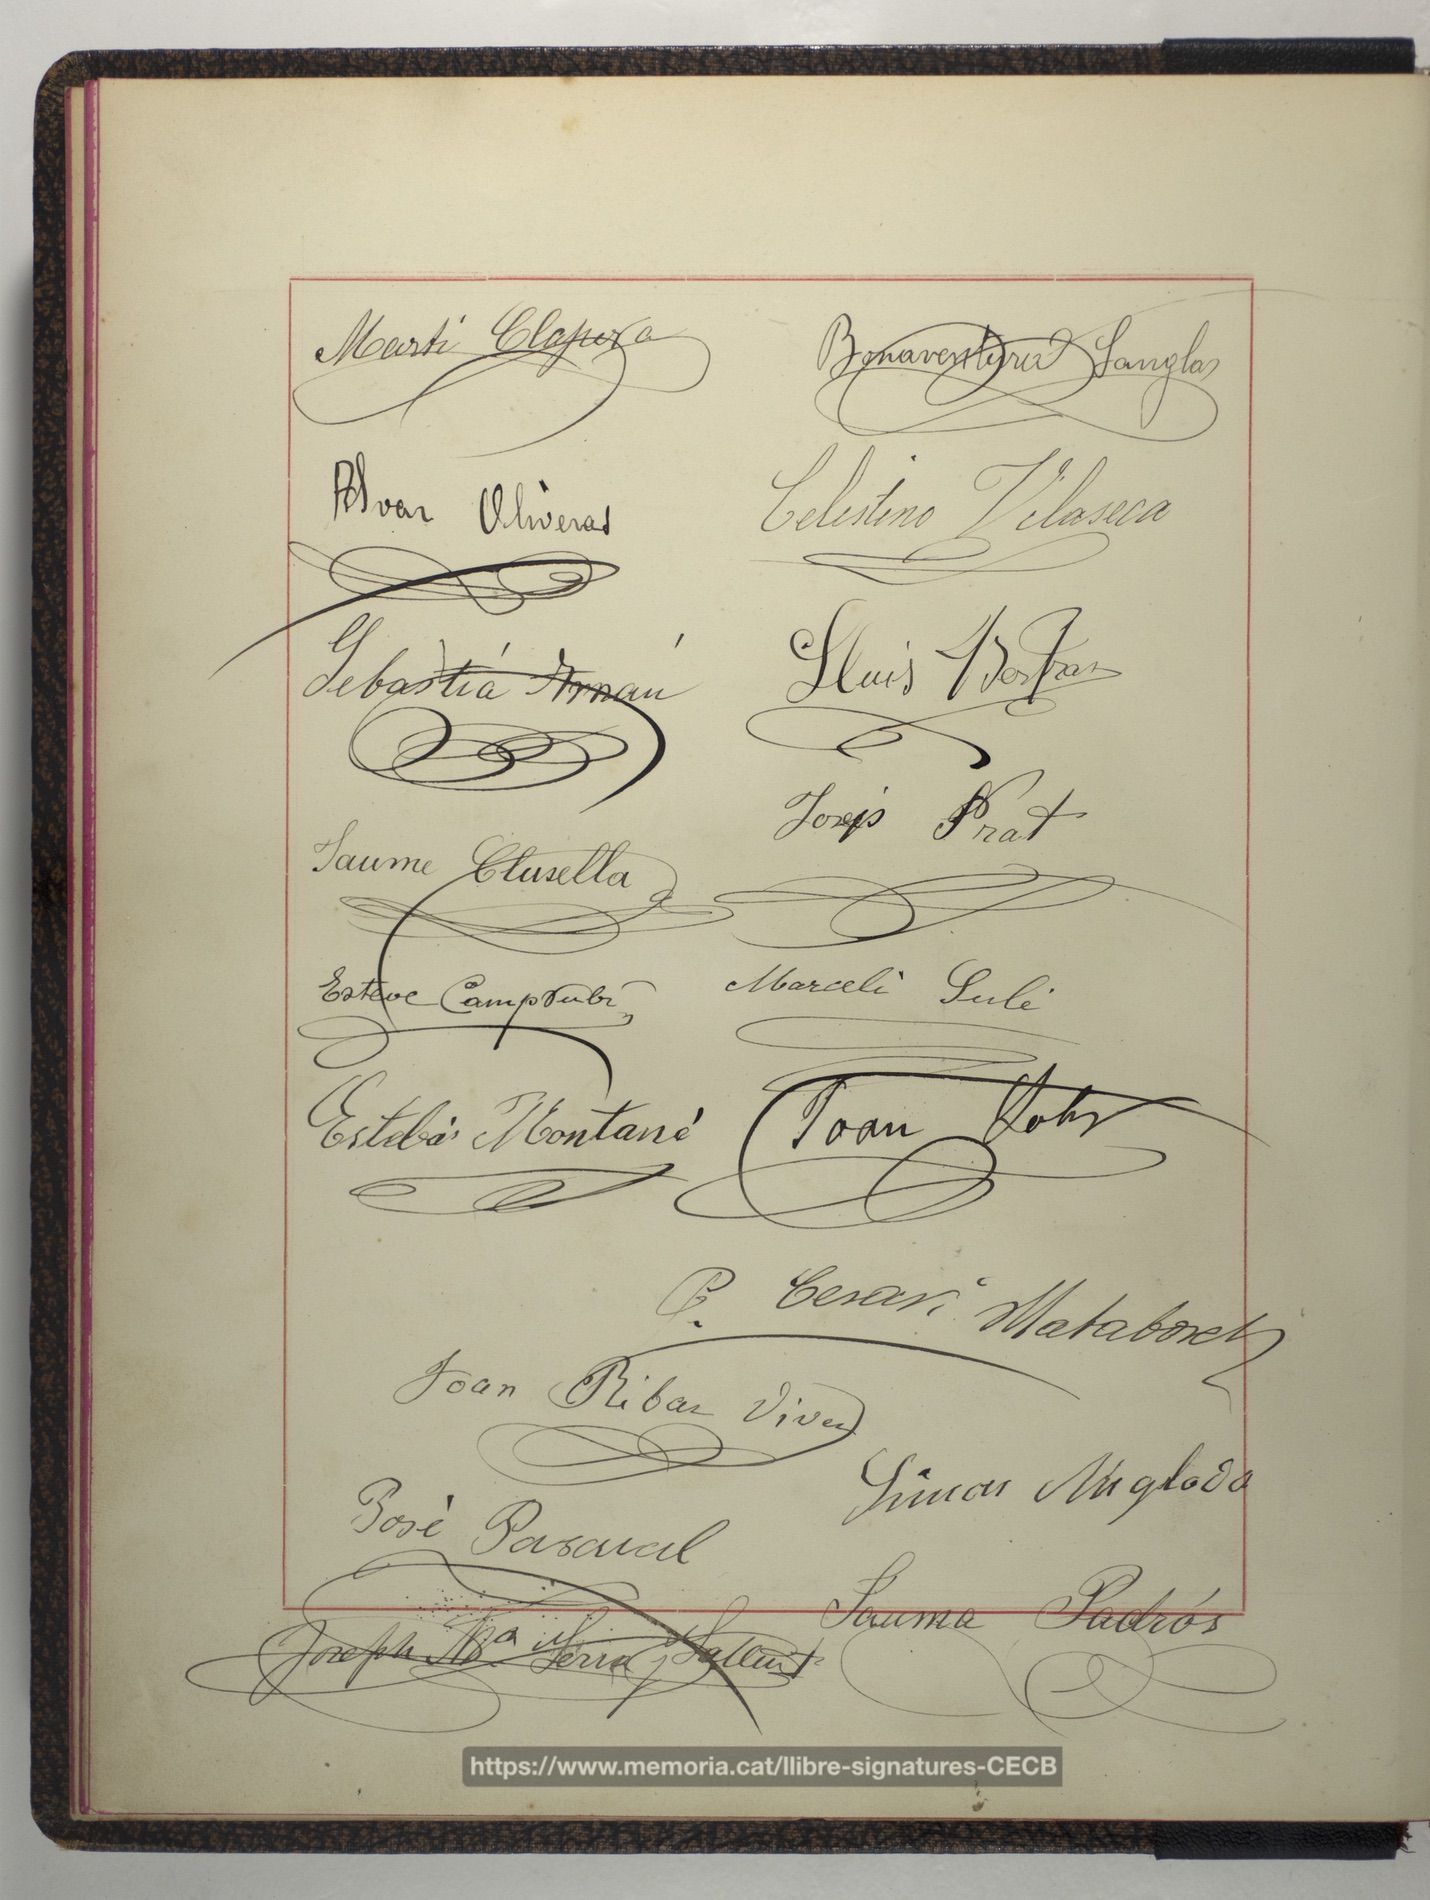 Martí Clapera
Bonaventura Sanglas
Alvar Oliveras
Celestino Vilaseca
Sebastiá Arnau
Lluis Bertran
Josep Prat
Jaume Clusella
Esteve Camprubí
Marcelí Sulé
Esteba Montané
Joan
P. Cesari Mataboset
Joan Ribas Vives
Simon Anglada
José Pascual
Jauma Padrós
Joseph Mª Serra y Sallent
https://www.memoria.cat/llibre-signatures-CECB